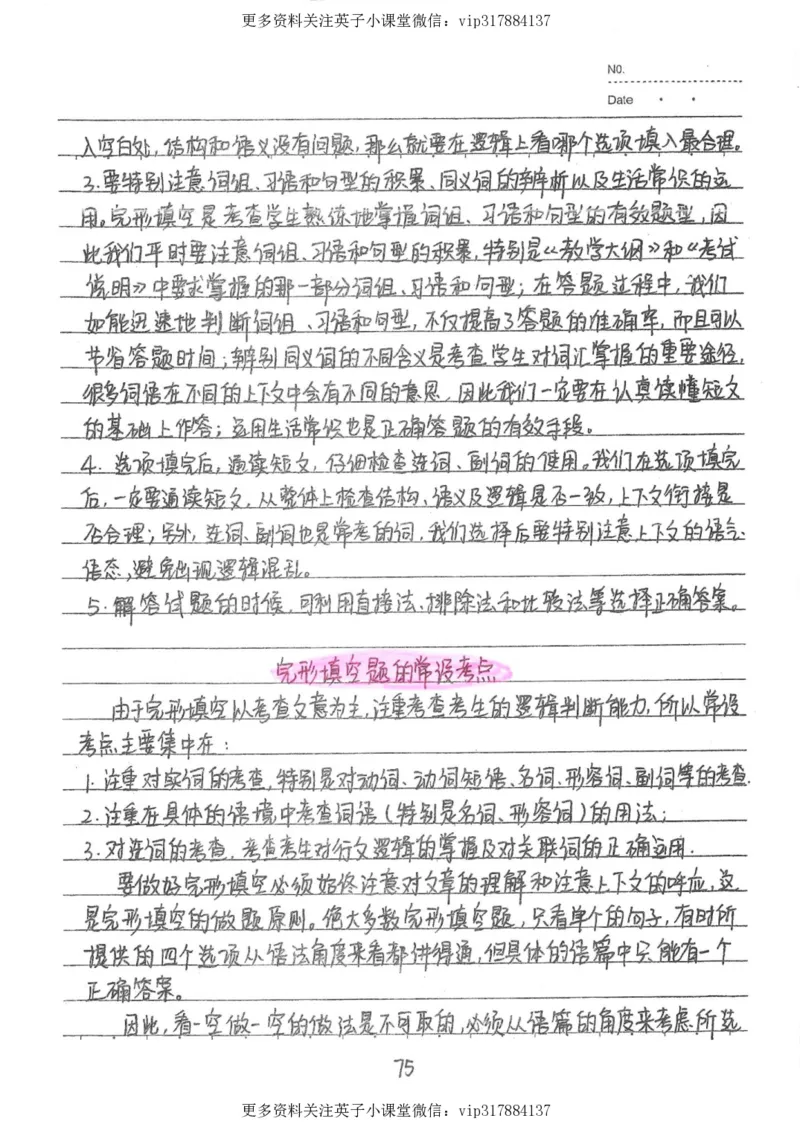 更多资料关注英子小课堂微信：vip317884137
NO.
Date
入空白处，结构和语义没有问题，那么就要在逻辑上看哪个选项填入最合理。
3.要特别注意词组、习语和句型的积累、同义词的辨析以及生活常识的运
用。完形填空是考查学生熟练地掌握词组、习语和句型的有效题型，因
此我们平时要注意词组、习语和句型的积累，特别是《教学大纲》和《考试
说明》中要求掌握的那一部分词组、习语和句型；在答题过程中，我们
如能迅速地判断词组、习语和句型，不仅提高了答题的准确率，而且可以
节省答题时间；辨别同义词的不同含义是考查学生对词汇掌握的重要途径，
很多词语在不同的上下文中会有不同的意思，因此我们一定要在认真读懂短文
的基础上作答；运用生活常识也是正确答题的有效手段。
4. 选项填完后，通读短文，仔细检查连词、副词的使用。我们在选项填完
后，一定要通读短文，从整体上检查结构、语义及逻辑是否一致，上下文衔接是
否合理；另外，连词、副词也是常考的词，我们选择后要特别注意上下文的语气、
语态，避免出现逻辑混乱。
5.解答试题的时候，可利用直接法、排除法和比较法等选择正确答案。
完形填空题的常设考点
由于完形填空以考查文意为主，注重考查考生的逻辑判断能力，所以常设
考点主要集中在：
1.注重对实词的考查，特别是对动词、动词短语、名词、形容词、副词等的考查.
2.注重在具体的语境中考查词语（特别是名词、形容词）的用法；
3.对连词的考查，考查考生对行文逻辑的掌握及对关联词的正确运用.
要做好完形填空必须始终注意对文章的理解和注意上下文的呼应，这
是完形填空的做题原则。绝大多数完形填空题，只看单个的句子，有时所
提供的四个选项从语法角度来看都讲得通，但具体的语篇中只能有一个
正确答案。
因此，看一空做一空的做法是不可取的，必须从语篇的角度来考虑所选
75
更多资料关注英子小课堂微信：vip317884137